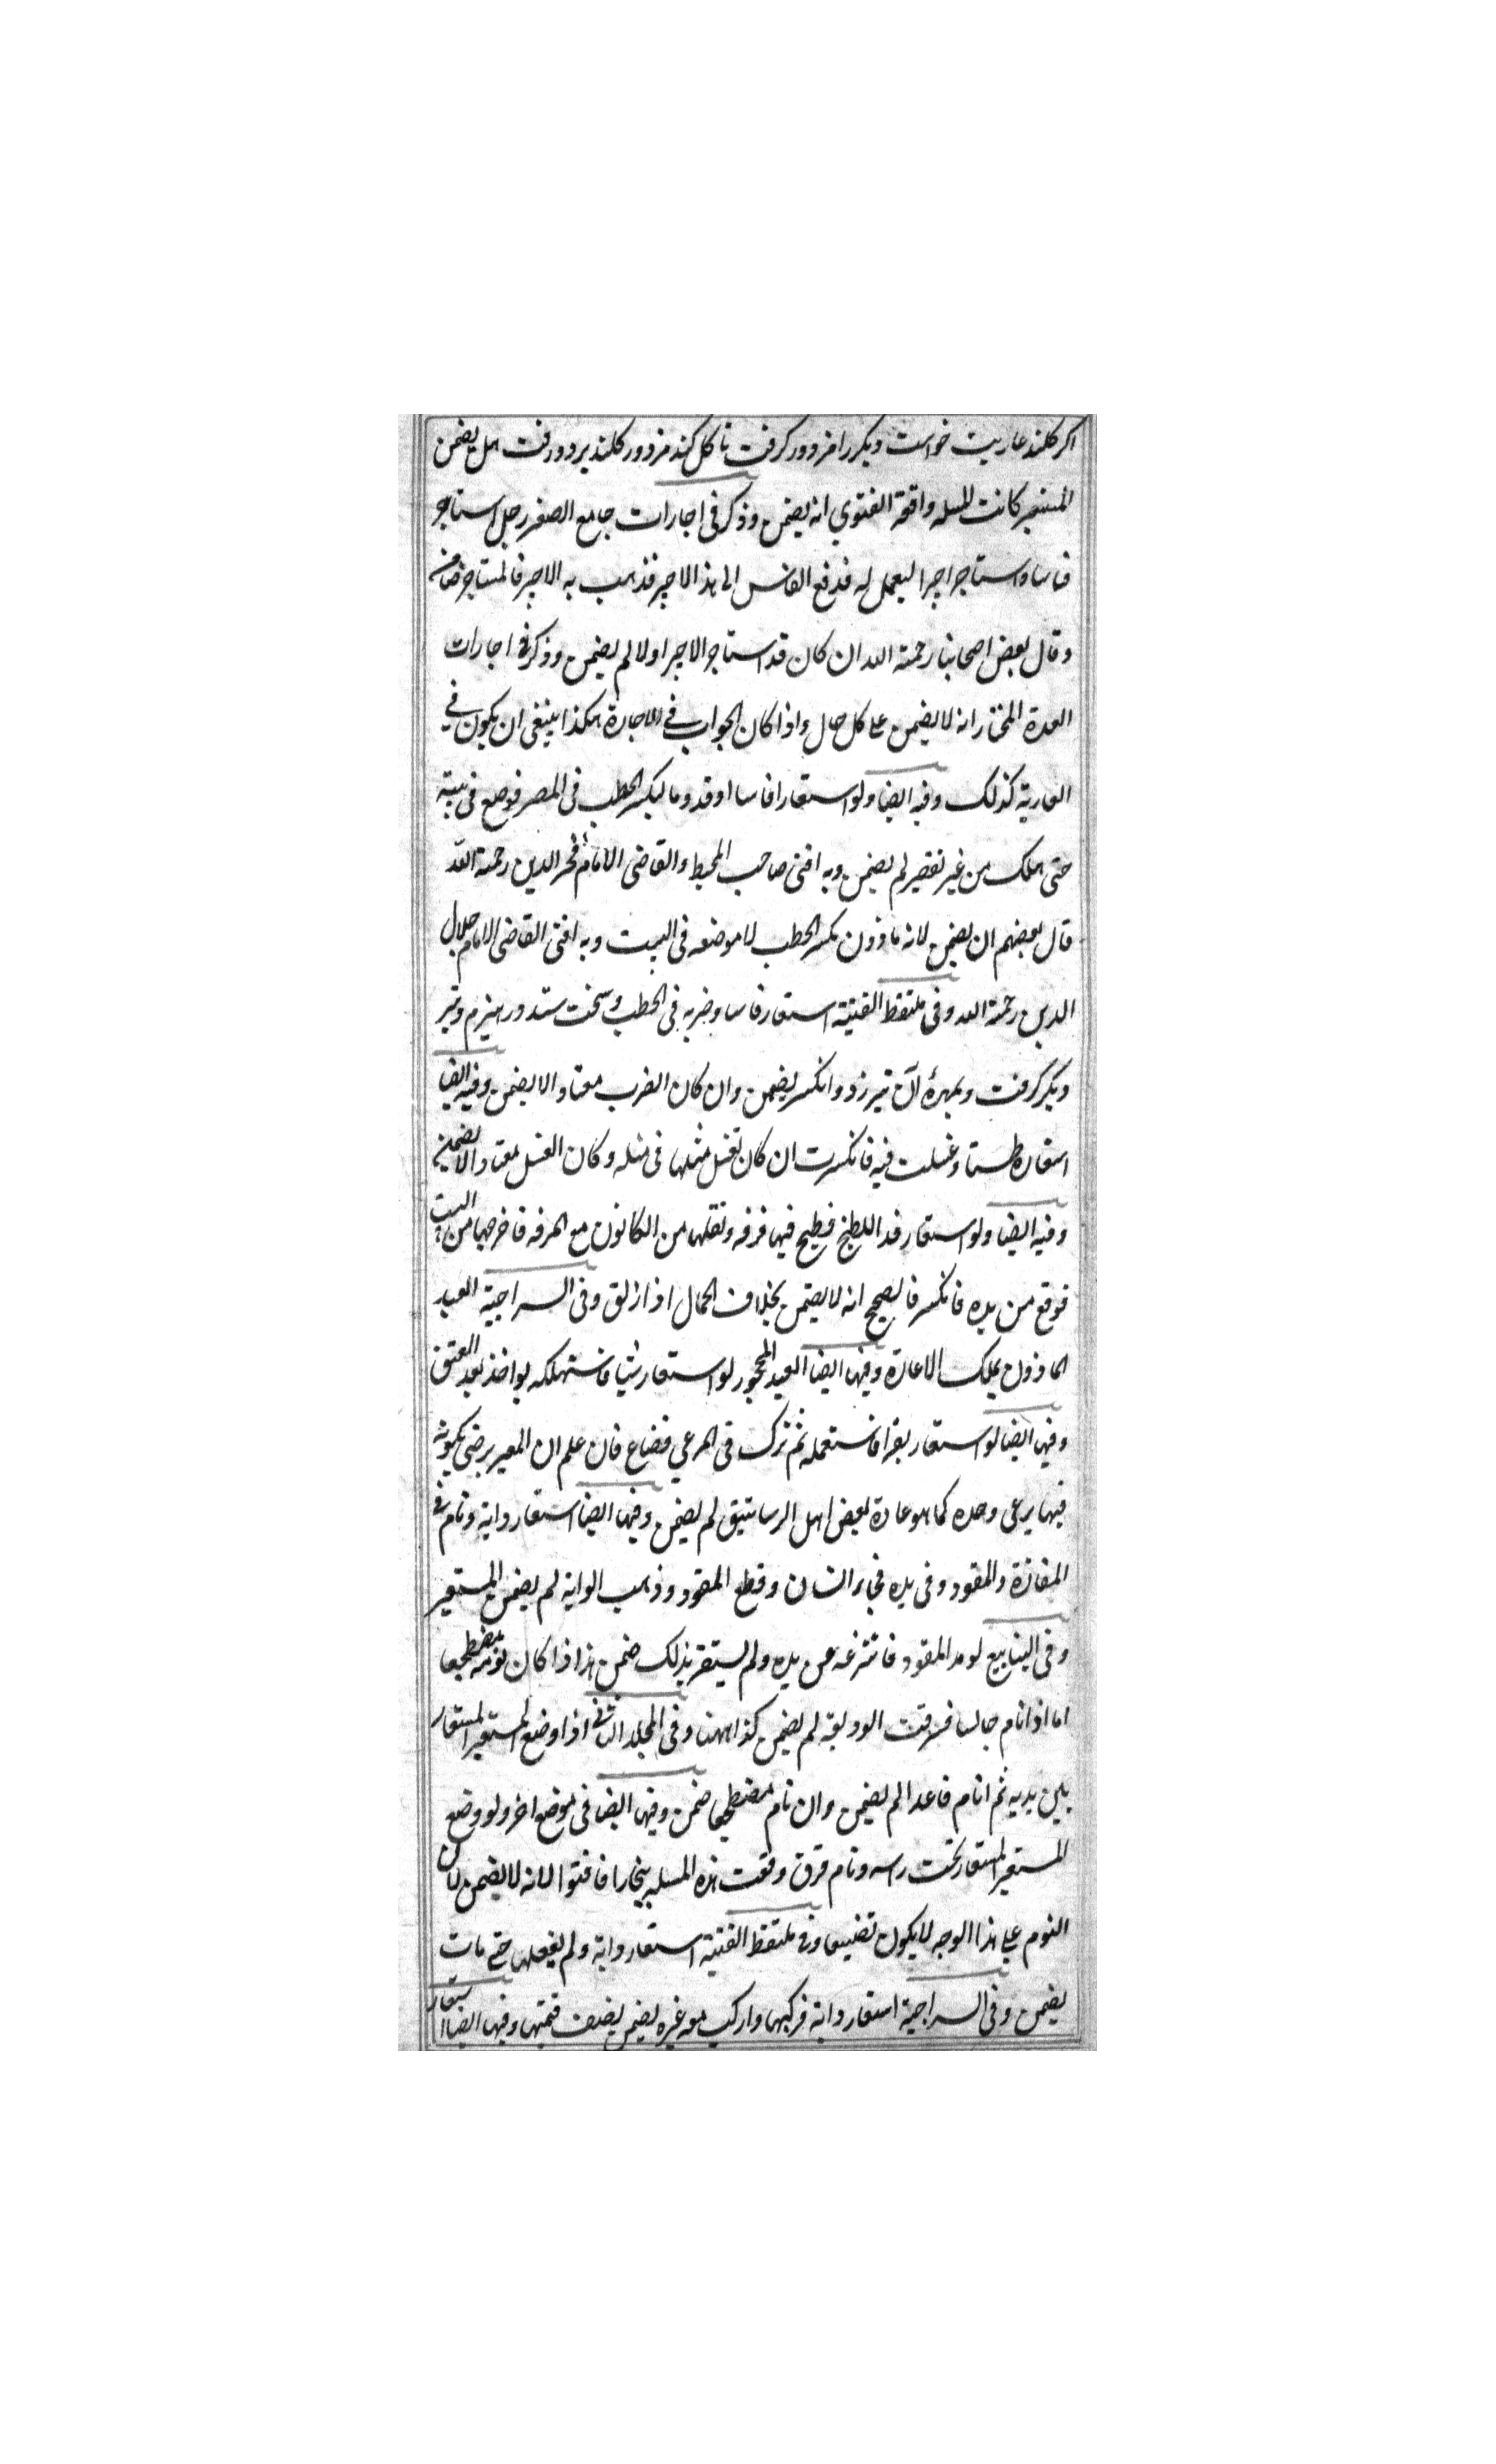 اكر كلند عاريت خواست ويكر را مزدور كرفت تا كل كند مزدور كلند برد ورفت هل يضمن
المستعير كانت المسله واقعة الفتوي انه يضمن وذكر فى اجارات جامع الصغر رجل استاجر
فاسا واستاجر اجيرا ليعمل له فدفع الفاس الى هذا الاجير فذهب به الاجير فالمستاجر ضامن
وقال بعض اصحابنا رحمة الله ان كان قد استاجر الاجير اولا لم يضمن وذكر فى اجارات
العدة المختار انه لا يضمن على كل حال واذا كان الجواب فى الاجارة هكذا ينبغى ان يكون فى
العارية كذلك وفيه ايضا ولو استعار فاسا او قدوما ليكسر الحطب فى المصر فوضع فى بيته
حتى هلك من غير تقصير لم يضمن وبه افتى صاحب المحيط والقاضى الامام فخر الدين رحمة الله
قال بعضهم ان يضمن لانه ماذون بكسر الحطب لا موضعه فى البيت وبه افتى القاضى الامام جلال
الدين رحمة الله وفى ملتقط القنية استعار فاسا وضربه فى الحطب وسخت شد در هيزم وتبر
ديكر كرفت وبمهرهٔ آن تبر زد وانكسر يضمن وان كان الضرب معتادا لا يضمن وفيه ايضا
استعاره طستا وغسلت فيه فانكسرت ان كان تغسل مثلها فى مثله وكان الغسل معتادا لا يضمن
وفيه ايضا ولو استعار قدرا للطبخ فطبخ فيها مرقة ونقلها من الكانون مع المرقه فاخرجها من البيت
فوقع من يده فانكسر فالصحيح انه لا يضمن بخلاف الحمال اذا زلق وفى السراجية العبد
الماذون يملك الاعارة وفيها ايضا العبد المحجور لو استعار شيا فاستهلكه يواخذ بعد العتق
وفيها ايضا لو استعار بقرا فاستعمله ثم ترك فى المرعي فضاع فان علم ان المعير يرضى بكونه
فيها يرعى وحده كما هو عادة بعض اهل الرساتيق لم يضمن وفيها ايضا استعار دابة ونام فى
المفازة والمقود وفى يده فجاء انسان وقطع المقود وذهب الدابة لم يضمن المستعير
وفى الينابيع لو مد المقود فانتزعه عن يده ولم يستقر بذلك ضمن هذا اذا كان نومه مضطجعا
اما اذا نام جالسا فسرقت الوديعة لم يضمن كذا ههنا وفى المجلد الثانى اذا وضع المستعير المستعار
بين يديه ثم انام قاعدا لم يضمن وان نام مضطجعا ضمن وفيها ايضا فى موضع اخر ولو وضع
المستعير المستعار تحت راسه ونام فسرق وقعت هذه المسله ببخارا فافتوا لانه لا يضمن لان
النوم على هذا الوجه لا يكون تضييعا وفى ملتقط القنية استعار دابة ولم يفعلها حتى مات
يضمن وفى السراجية استعار دابة فركبها واركب معه غيره يضمن نصف قيمتها وفيها ايضا استعار